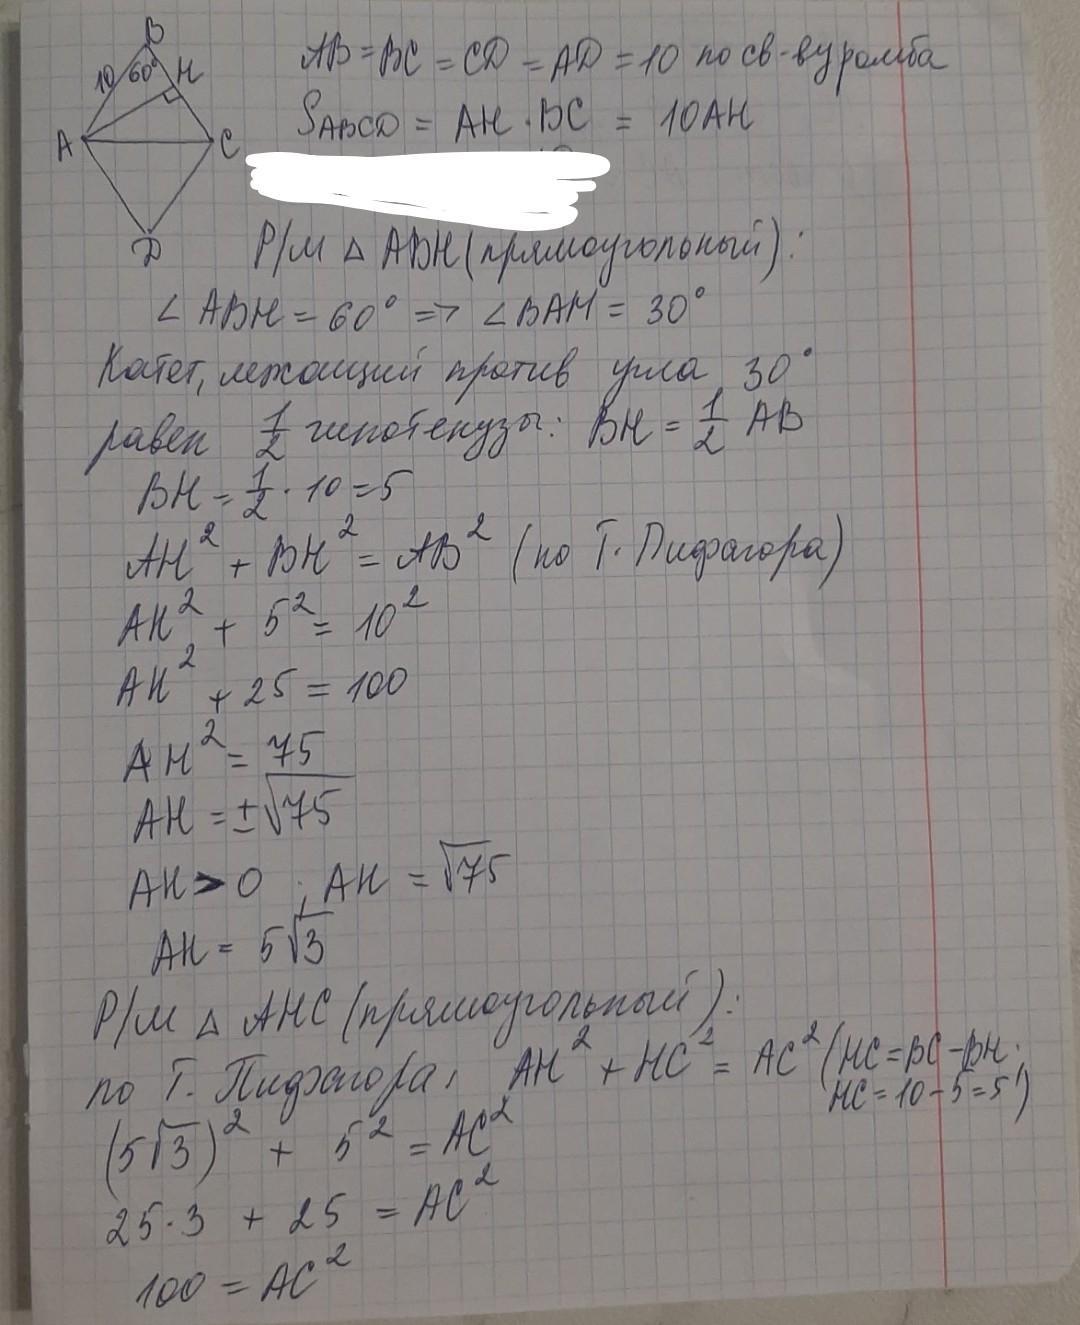 B
10 60° H
A
C
D
AB = BC = CD = AD = 10 по св-ву ромба
SABCD = AH · BC = 10AH
Р/м △ ABH (прямоугольный):
∠ ABH = 60° => ∠BAH = 30°
Катет, лежащий против угла 30°
равен 1/2 гипотенузы: BH = 1/2 AB
BH = 1/2 · 10 = 5
AH² + BH² = AB² (по Т. Пифагора)
AH² + 5² = 10²
AH² + 25 = 100
AH² = 75
AH = ±√75
AH > 0 ; AH = √75
AH = 5√3
Р/м △ AHC (прямоугольный):
по Т. Пифагора, AH² + HC² = AC² (HC = BC - BH.
HC = 10 - 5 = 5)
(5√3)² + 5² = AC²
25 · 3 + 25 = AC²
100 = AC²